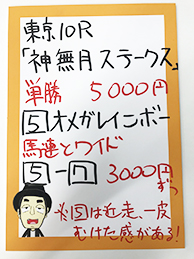 東京10R
「神無月ステークス」
単勝 5000円
5オメガレインボー
馬連とワイド
5-7 3000円ずつ
※5は近走、一皮
むけた感がある!